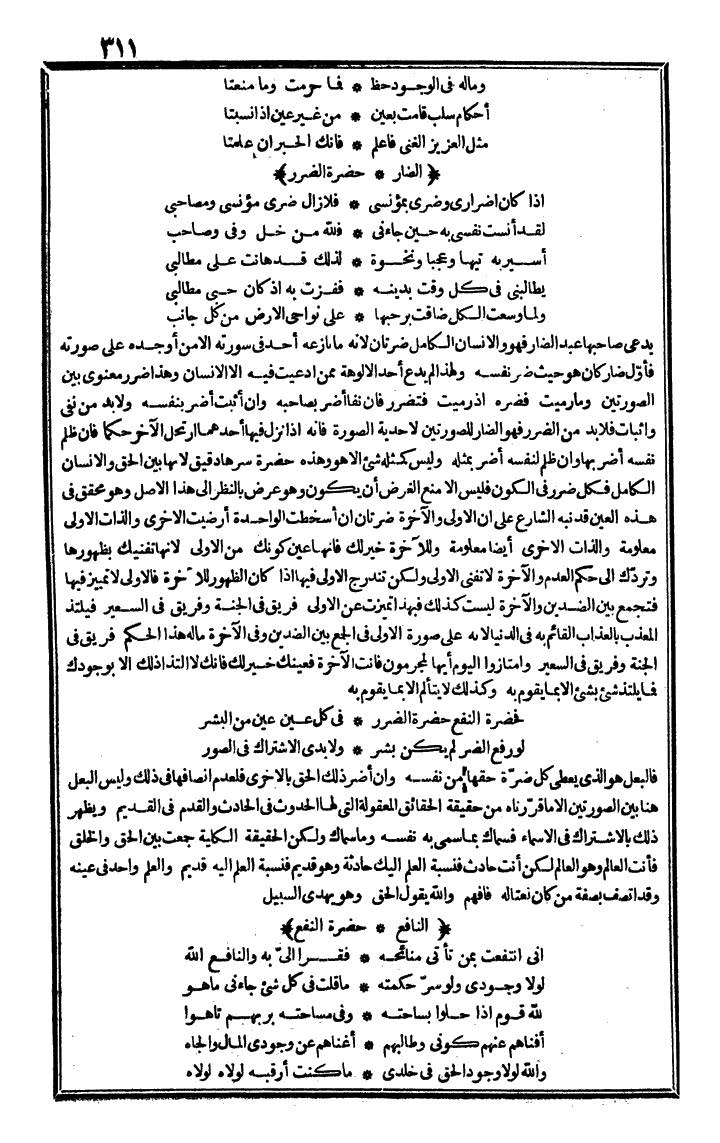 ٣١١
وماله فى الوجود حظ * فما حرمت وما منعتا
أحكام سلب قامت بعين * من غير عين اذا نسبتا
مثل العزيز الغنى فاعلم * فانك الحبر ان علمتا
﴿ الضار * حضرة الضرر﴾
اذا كان اضرارى وضرى بمؤنسى * فلازال ضرى مؤنسى ومصاحبى
لقد أنست نفسى به حين جاءنى * فلله من خل وفى وصاحب
أسير به تيها وعجبا ونخوة * لذلك قد هانت على مطالبى
يطالبنى فى كل وقت بدينه * ففزت به اذ كان حبى مطالبى
ولما وسعت الكل ضاقت برحبها * على نواحى الارض من كل جانب
يدعى صاحبها عبد الضار فهو والانسان الكامل ضرتان لانه ما نازعه أحد فى سورته الا من أوجده على صورته
فأول ضار كان هو حيث ضر نفسه ولهذا لم يدع أحد الالوهة ممن ادعيت فيه الا الانسان وهذا ضرر معنوى بين
الصورتين ومارميت فضره اذ رميت فتضرر فان نفا أضر بصاحبه وان أثبت أضر بنفسه ولابد من نفى
واثبات فلابد من الضرر فهو الضار للصورتين لاحدية الصورة فانه اذا نزل فيها أحدهما ارتحل الآخر حكما فان ظلم
نفسه أضر بها وان ظلم لنفسه أضر بمثله وليس كمثله شئ الا هو وهذه حضرة سرها دقيق لانها بين الحق والانسان
الكامل فكل ضرر فى الكون فليس الا منع الغرض أن يكون وهو عرض بالنظر الى هذا الاصل وهو محقق فى
هذه العين قد نبه الشارع على ان الاولى والآخرة ضرتان ان أسخطت الواحدة أرضيت الاخرى والذات الاولى
معلومة والذات الاخرى أيضا معلومة وللآخرة خير لك فانها عين كونك من الاولى لانها تفنيك بظهورها
وتردّك الى حكم العدم والآخرة لا تفنى الاولى ولكن تندرج الاولى فيها اذا كان الظهور للآخرة فالاولى لا تمييز فيها
فتجمع بين الضدين والآخرة ليست كذلك فبهذا تميزت عن الاولى فريق فى الجنة وفريق فى السعير فيلتذ
المعذب بالعذاب القائم به فى الدنيا لانه على صورة الاولى فى الجمع بين الضدين وفى الآخرة ماله هذا الحكم فريق فى
الجنة وفريق فى السعير وامتازوا اليوم أيها المجرمون فانت الآخرة فعينك خير لك فانك لا التذاذ لك الا بوجودك
فما يلتذ شئ بشئ الا بما يقوم به وكذلك لا يتألم الا بما يقوم به
فحضرة النفع حضرة الضرر * فى كل عين عين من البشر
لو رفع الضر لم يكن بشر * ولابدى الاشتراك فى الصور
فالبعل هو الذى يعطى كل ضرّة حقها من نفسه وان أضر ذلك الحق بالاخرى فلعدم انصافها فى ذلك وليس البعل
هنا بين الصورتين الا ماقررناه من حقيقة الحقائق المعقولة التى لها الحدوث فى الحادث والقدم فى القديم ويظهر
ذلك بالاشتراك فى الاسماء فسماك بما سمى به نفسه وما سماك ولكن الحقيقة الكلية جمعت بين الحق والخلق
فأنت العالم وهو العالم لكن أنت حادث فنسبة العلم اليك حادثة وهو قديم فنسبة العلم اليه قديم والعلم واحد فى عينه
وقد اتصف بصفة من كان نعتاله فافهم والله يقول الحق وهو يهدى السبيل
﴿ النافع * حضرة النفع﴾
انى انتفعت بمن تأتى منائحه * فقرا الىّ به والنافع الله
لولا وجودى ولو سرّ حكمته * ماقلت فى كل شئ جاءنى ماهو
لله قوم اذا حلوا بساحته * وفى مساحته بربهم تاهوا
أفناهم عنهم كونى وطالبهم * أغناهم عن وجودى المال والجاه
والله لولا وجود الحق فى خلدى * ما كنت أرقبه لولاه لولاه